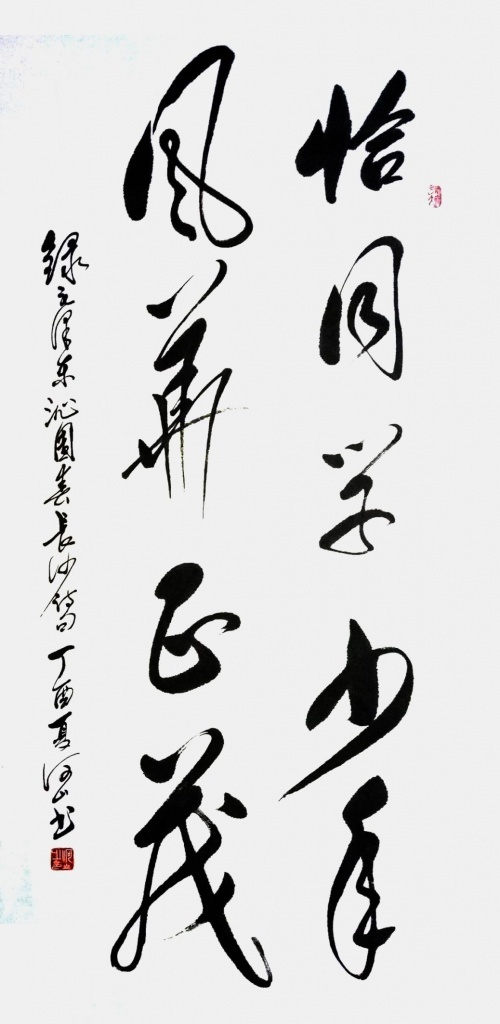 恰同学少年
风华正茂
录毛泽东沁园春长沙诗句丁酉夏河山书